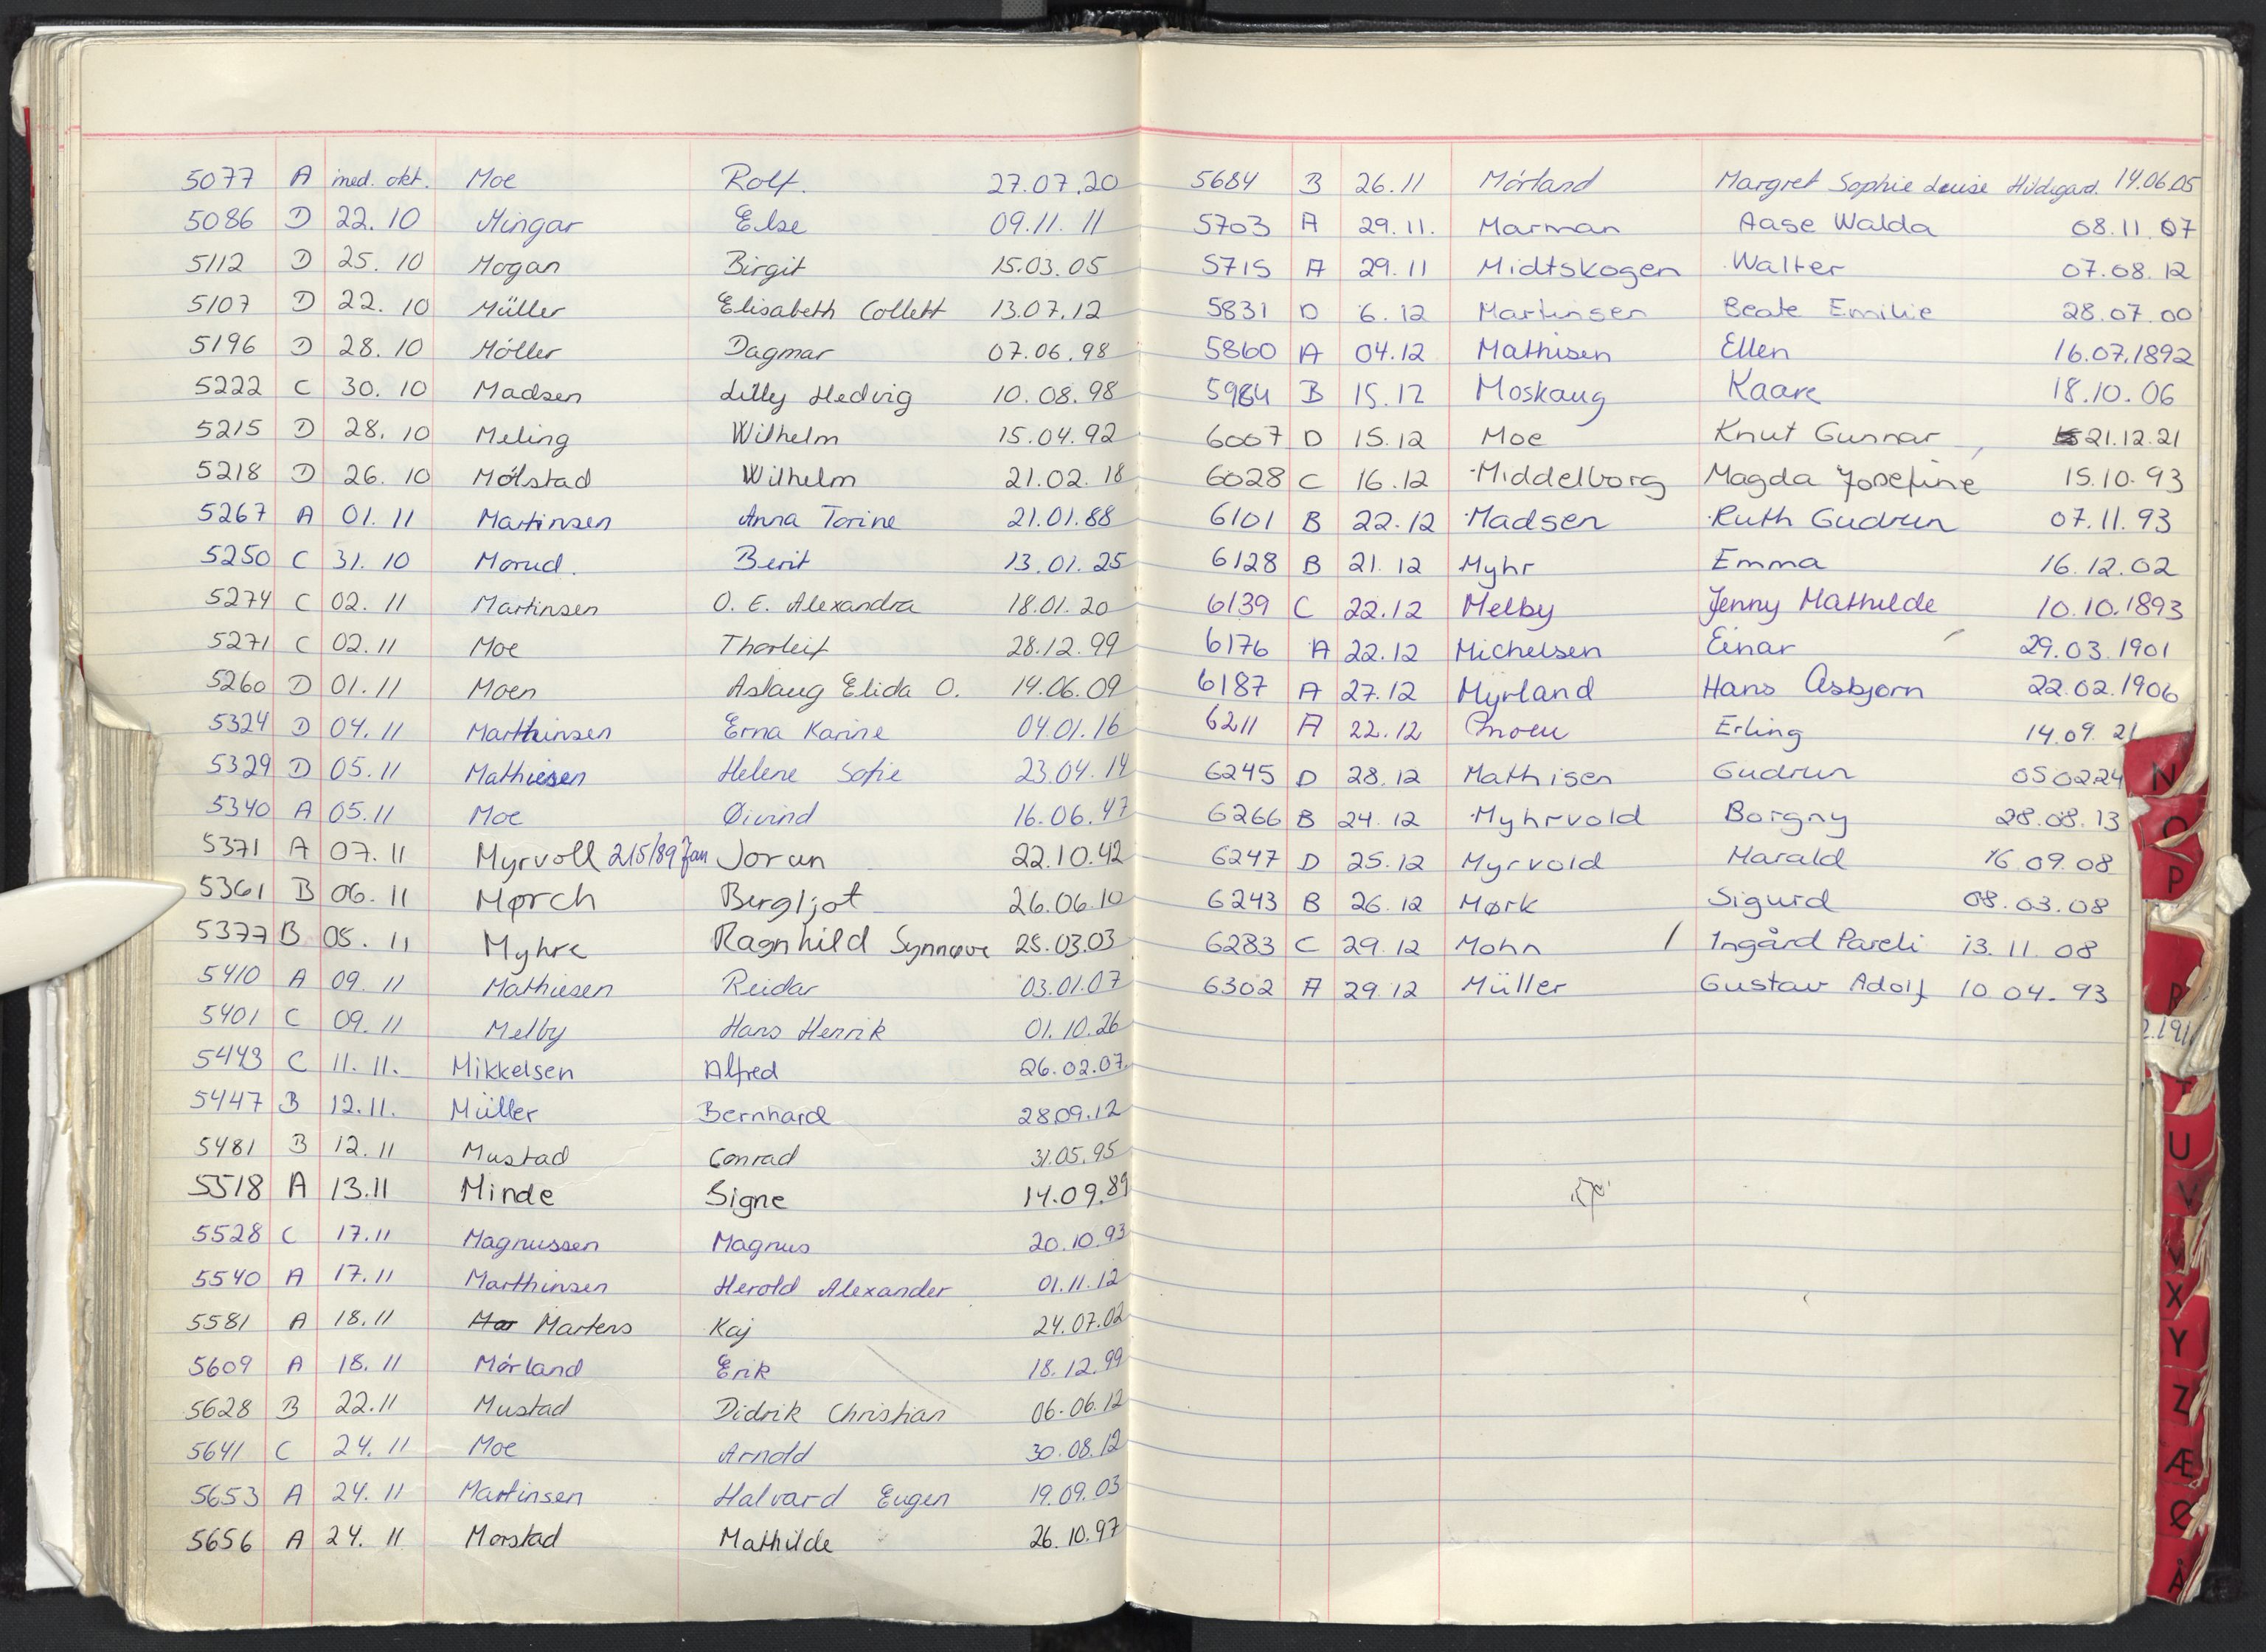 5077 A med. okt. Moe Rolf. 27.07.20
5086 D 22.10 Mingar Else 09.11.11
5112 D 25.10 Mogan Birgit 15.03.05
5107 D 22.10 Müller Elisabeth Collett 13.07.12
5196 D 28.10 Möller Dagmar 07.06.98
5222 C 30.10 Madsen Lilly Hedvig 10.08.98
5215 D 28.10 Meling Wilhelm 15.04.92
5218 D 26.10 Mølstad Wilhelm 21.02.18
5267 A 01.11 Martinsen Anna Torine 21.01.88
5250 C 31.10 Morud. Berit 13.01.25
5274 C 02.11 Martinsen O. E. Alexandra 18.01.20
5271 C 02.11 Moe Thorleif 28.12.99
5260 D 01.11 Moen Aslaug Elida O. 14.06.09
5324 D 04.11 Marthinsen Erna Karine 04.01.16
5329 D 05.11 Mathiesen Helene Sofie 23.04.14
5340 A 05.11 Moe Øivind 16.06.47
5371 A 07.11 Myrvoll 2/5/89 Jan Jorun 22.10.42
5361 B 06.11 Mørch Bergljot 26.06.10
5377 B 05.11 Myhre Ragnhild Synnøve 25.03.03
5410 A 09.11 Mathiesen Reidar 03.01.07
5401 C 09.11 Melby Hans Henrik 01.10.26
5443 C 11.11. Mikkelsen Alfred 26.02.07
5447 B 12.11. Müller Bernhard 28.09.12
5481 B 12.11 Mustad Conrad 31.05.95
5518 A 13.11 Minde Signe 14.09.89
5528 C 17.11 Magnussen Magnus 20.10.93
5540 A 17.11 Marthinsen Herold Alexander 01.11.12
5581 A 18.11 Mar Martens Kaj 24.07.02
5609 A 18.11 Mørland Erik 18.12.99
5628 B 22.11 Mustad Didrik Christian 06.06.12
5641 C 24.11 Moe Arnold 30.08.12
5653 A 24.11 Martinsen Halvard Eugen 19.09.03
5656 A 24.11 Morstad Mathilde 26.10.97
5684 B 26.11 Mørland Margret Sophie Luise Hildegard. 14.06.05
5703 A 29.11. Marman Aase Walda 08.11.07
5715 A 29.11 Midtskogen Walter 07.08.12
5831 D 6.12 Martinsen Beate Emilie 28.07.00
5860 A 04.12 Mathisen Ellen 16.07.1892
5984 B 15.12 Moskaug Kaare 18.10.06
6007 D 15.12 Moe Knut Gunnar 21.12.21
6028 C 16.12 Middelborg Magda Josefine 15.10.93
6101 B 22.12 Madsen Ruth Gudrun 07.11.93
6128 B 21.12 Myhr Emma 16.12.02
6139 C 22.12 Melby Jenny Mathilde 10.10.1893
6176 A 22.12 Michelsen Einar 29.03.1901
6187 A 27.12 Myrland Hans Asbjørn 22.02.1906
6211 A 22.12 Moen Erling 14.09.21
6245 D 28.12 Mathisen Gudrun 050224
6266 B 24.12 Myhrvold Borgny 28.08.13
6247 D 25.12 Myrvold Harald 16.09.08
6243 B 26.12 Mørk Sigurd 08.03.08
6283 C 29.12 Mohn / Ingård Pareli 13.11.08
6302 A 29.12 Müller Gustav Adolf 10.04.93
N
O
P
R
2.191
T
U
V
X
Y
Z
Æ
Ø
Å